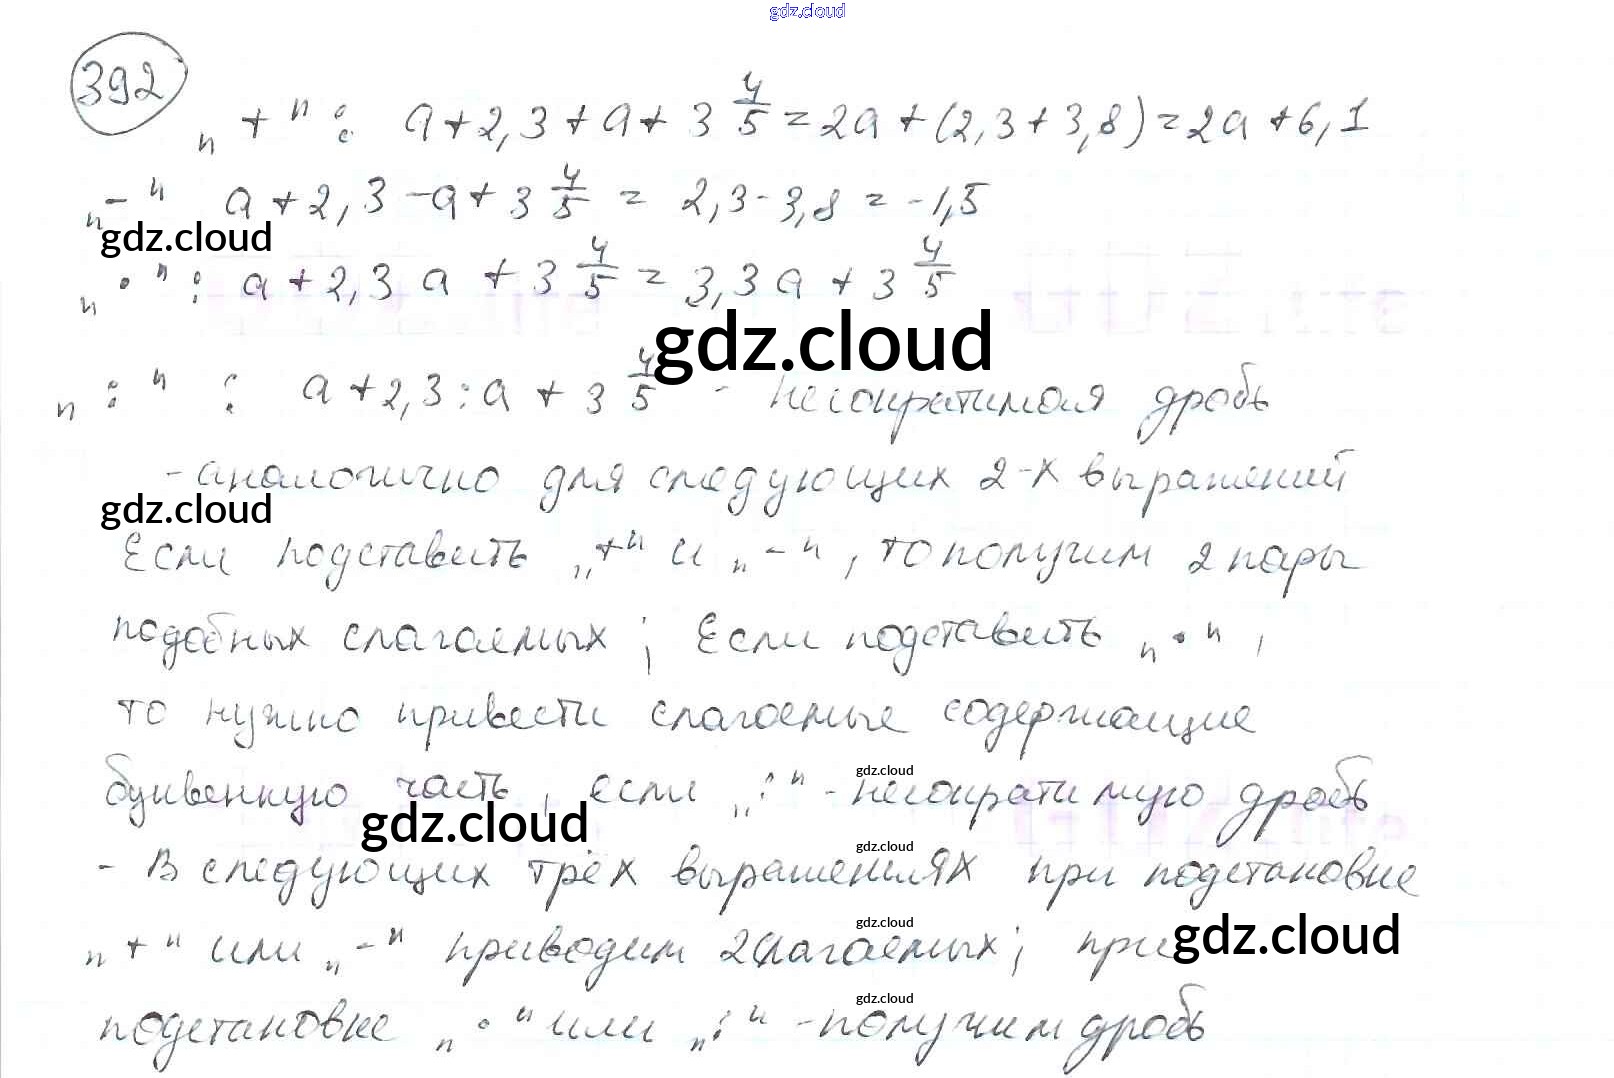 gdz.cloud
392
„+“: a+2,3+a+3 4/5=2a+(2,3+3,8)=2a+6,1
„-“ a+2,3-a+3 4/5 = 2,3-3,8=-1,5
gdz.cloud
„·“: a+2,3a+3 4/5=3,3a+3 4/5
gdz.cloud
„:“: a+2,3:a+3 4/5 - несократимая дробь
-аналогично для следующих 2-х выражений
gdz.cloud
Если подставить „+“ и „-“, то получим 2 пары
подобных слагаемых; Если подставить „·“,
то нужно привести слагаемые содержащие
gdz.cloud
буквенную часть, если „:“-несократимую дробь
gdz.cloud
gdz.cloud
- В следующих трёх выражениях при подстановке
gdz.cloud
gdz.cloud
„+“ или „-“ приводим 2 слагаемых; при
gdz.cloud
подстановке „·“ или „:“ -получим дробь